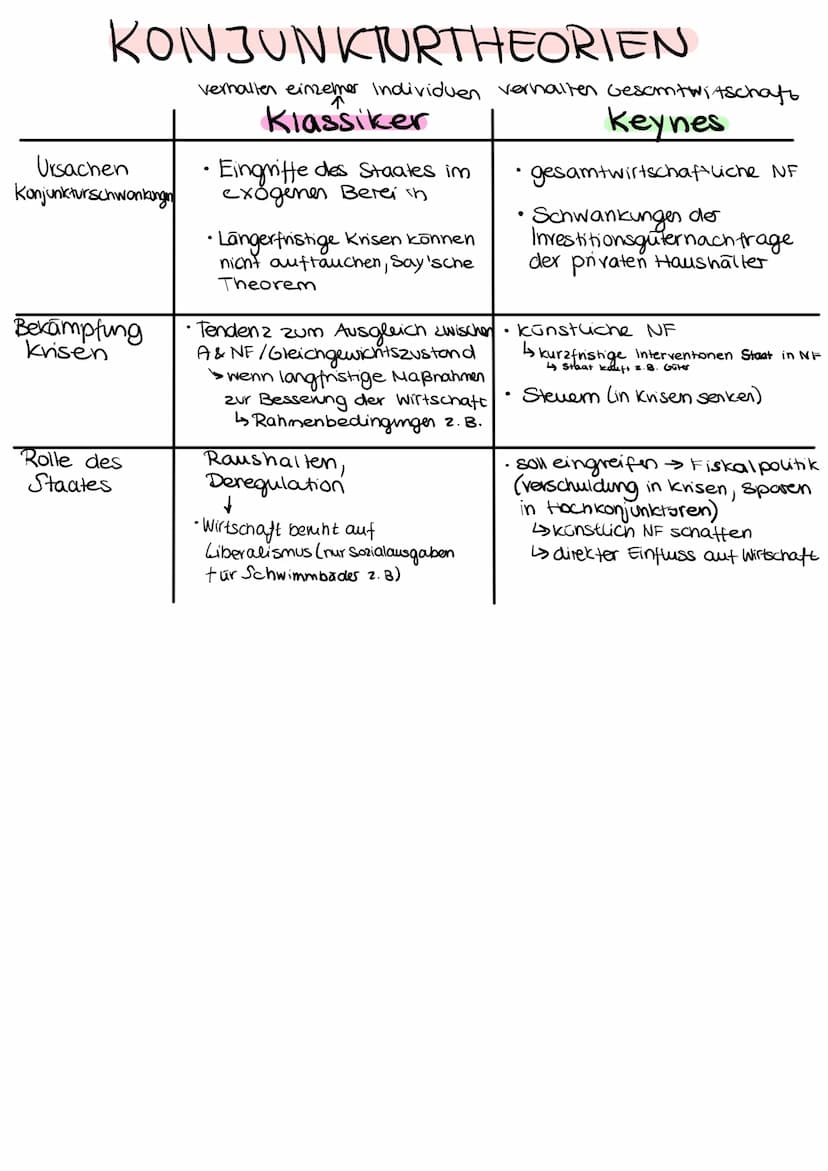 KONJUNKTURTHEORIEN
Verhalten einzelner Individuen
Verhalten Gesamtwirtschaft
Klassiker
Keynes
Ursachen
Konjunkturschwankungn
• Eingriffe des Staates im
exogenen Bereich
• Längerfristige Krisen können
nicht auftauchen, Say'sche
Theorem
• gesamtwirtschaftliche NF
• Schwankungen der
Investitionsgüternachfrage
der privaten Haushälter
Bekämpfung
Krisen
• Tendenz zum Ausgleich zwischen
A & NF / Gleichgewichtszustand
↳ wenn langfristige Maßnahmen
zur Besserung der Wirtschaft
↳ Rahmenbedingungen z.B.
• künstliche NF
↳ kurzfristige Interventonen Staat in NF
↳ Staat kauft z.B. Güter
• Steuern (in Krisen senken)
Rolle des
Staates
Raushalten,
Deregulation
↓
• Wirtschaft beruht auf
Liberalismus (nur Sozialausgaben
für Schwimmbäder z.B)
• soll eingreifen → Fiskalpolitik
(verschuldung in Krisen, sparen
in Hochkonjunkturen)
↳ künstlich NF schaffen
↳ direkter Einfluss auf Wirtschaft